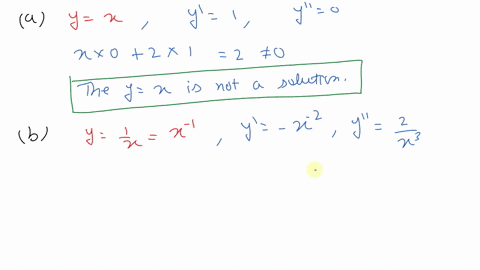 (a) y = x , y' = 1, y'' = 0
x × 0 + 2 × 1 = 2 ≠ 0
The y = x is not a solution.
(b) y = 1/x = x⁻¹ , y' = -x⁻² , y'' = 2/x³